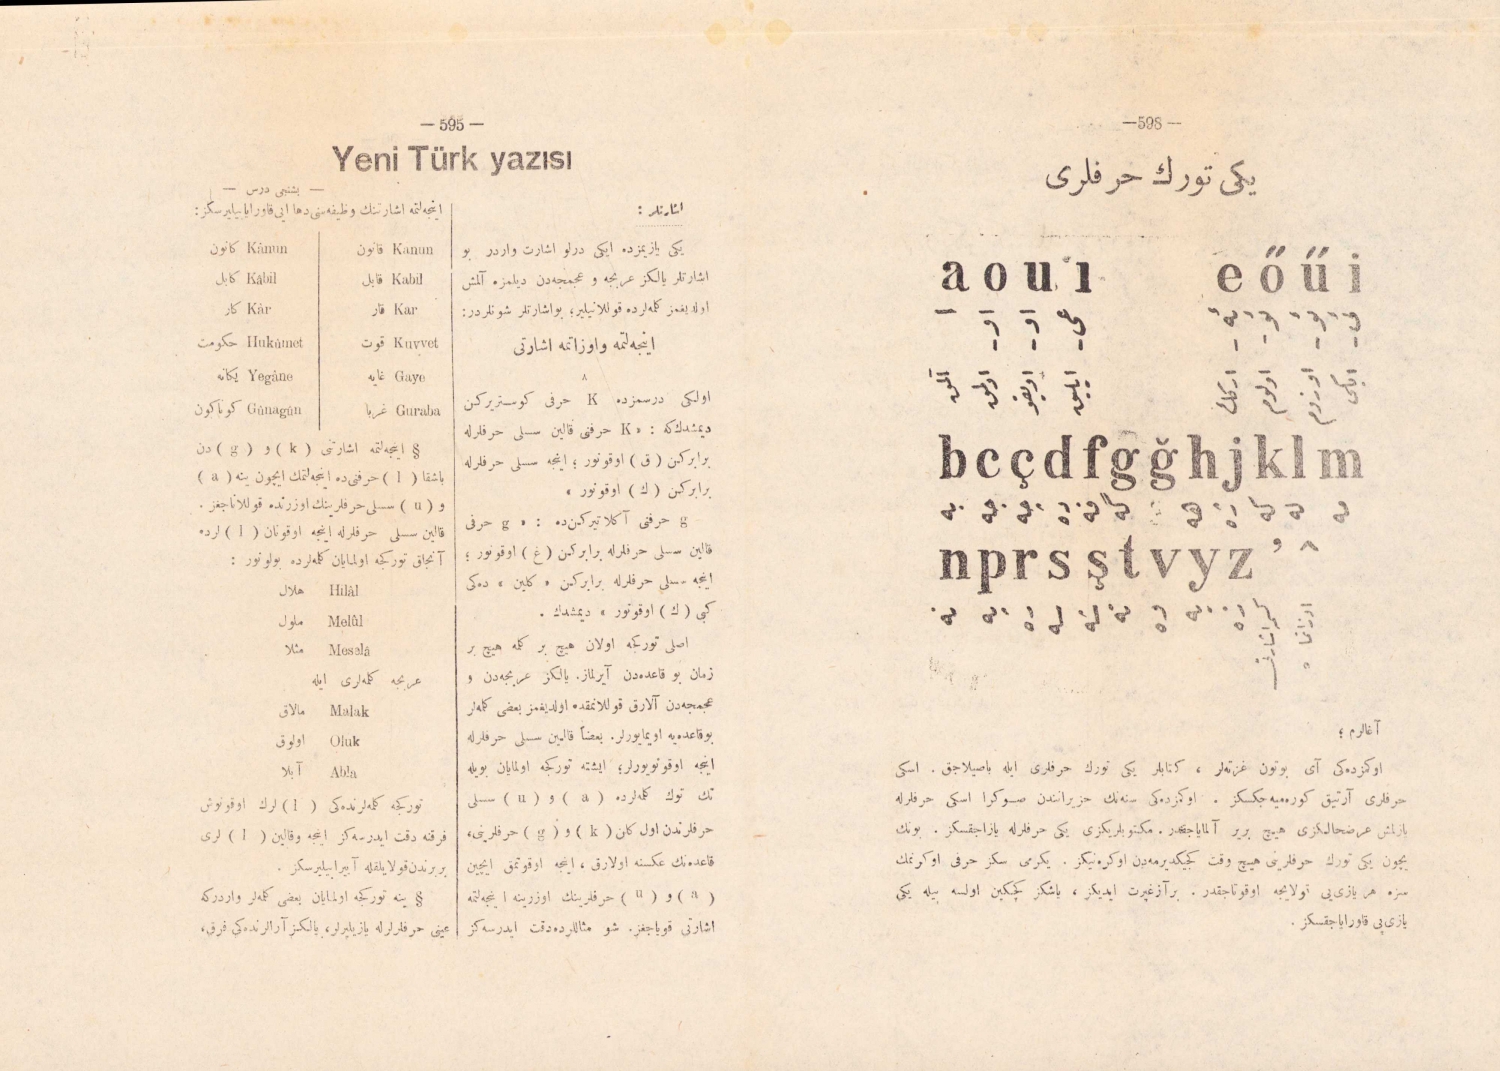 — 595 —
Yeni Türk yazısı
— بشنجی درس —
اشارتلر :
یكی یازیمزده ایكی درلو اشارت واردر بو
اشارتلر یالكز عربجه و عجمجه‌دن دیلمزه آلمش
اولدیغمز كلمه‌لرده قوللانیلیر؛ بواشارتلر شونلردر:
اینجه‌لتمه واوزاتمه اشارتی
^
اولكی درسمزده K حرفی كوستریركن
دیمشدك‌كه : « K حرفی قالین سسلی حرفلرله
برابركن ( ق ) اوقونور ؛ اینجه سسلی حرفلرله
برابركن ( ك ) اوقونور »
g حرفنی آكلاتیركن‌ده : « g حرفی
قالین سسلی حرفلرله برابركن ( غ ) اوقونور ؛
اینجه سسلی حرفلرله برابركن « كلین » ده‌كی
كبی ( ك ) اوقونور » دیمشدك .
اصلی توركجه اولان هیچ بر كلمه هیچ بر
زمان بو قاعده‌دن آیرلماز. یالكز عربجه‌دن و
عجمجه‌دن آلارق قوللانمقده اولدیغمز بعضی كلمه‌لر
بوقاعده‌یه اویمایورلر. بعضاً قالین سسلی حرفلرله
اینجه اوقونویورلر؛ ایشته توركجه اولمایان بویله
تك توك كلمه‌لرده ( a ) و ( u ) سسلی
حرفلرندن اول كان ( k ) و ( g ) حرفلرینی،
قاعده‌نك عكسنه اولارق ، اینجه اوقوتمق ایچین
( a ) و ( u ) حرفلرینك اوزرینه اینجه‌لتمه
اشارتی قویاجغز. شو مثاللرده‌دقت ایدرسه‌كز
اینجه‌لتمه اشارتنك وظیفه‌سنی‌دها ایی‌قاورایابیلیرسكز:
Kanun قانون Kânun كانون
Kabil قابل Kâbil كابل
Kar قار Kâr كار
Kuvvet قوت Hukûmet حكومت
Gaye غایه Yegâne یكانه
Guraba غربا Gûnagûn كوناكون
§ اینجه‌لتمه اشارتنی ( k ) و ( g ) دن
باشقا ( l ) حرفنی‌ده اینجه‌لتمك ایچون ینه ( a )
و ( u ) سسلی‌حرفلرینك‌اوزرنده قوللاناجغز .
قالین سسلی حرفلرله اینجه اوقونان ( l ) لرده
آنجاق توركجه اولمایان كلمه‌لرده بولونور :
Hilâl هلال
Melûl ملول
Meselâ مثلا
عربجه كلمه‌لری ایله
Malak مالاق
Oluk اولوق
Abla آبلا
توركجه كلمه‌لرنده‌كی ( l ) لرك اوقونوش
فرقنه دقت ایدرسه‌كز اینجه وقالین ( l ) لری
بربرندن‌قولایلقله آییرابیلیرسكز .
§ ینه توركجه اولمایان بعضی كلمه‌لر واردركه
عینی حرفلرله یازیلیرلر، یالكنز آرالرنده‌كی فرق،
— 598 —
یكی تورك حرفلری
a o u ı e ő ű i
آلمق اولمق اویقو ایلیق اركك اولوم اوزوم ایكی
b c ç d f g ğ h j k l m
n p r s ş t v y z ’ ^
آغالرم ؛
اوكمزده‌كی آی بوتون غزته‌لر ، كتابلر یكی تورك حرفلری ایله باصیلاجق . اسكی
حرفلری آرتیق كوره‌میه‌جكسكز . اوكمزده‌كی سنه‌نك حزیرانندن صوكرا اسكی حرفلرله
یازلمش عرضحالكزی هیچ بریر آلمایاجقدر. مكتوبلریكزی یكی حرفلرله یازاجقسكز . بونك
یچون یكی تورك حرفلرینی هیچ وقت كچیكدیرمه‌دن اوكره‌نیكز . یكرمی سكز حرفی اوكرنمك
سزه هر یازی‌یی قولایجه اوقوتاجقدر . برآزغیرت ایدیكز ، یاشكز كچكین اولسه بیله یكی
یازی‌یی قاورایاجقسكز .